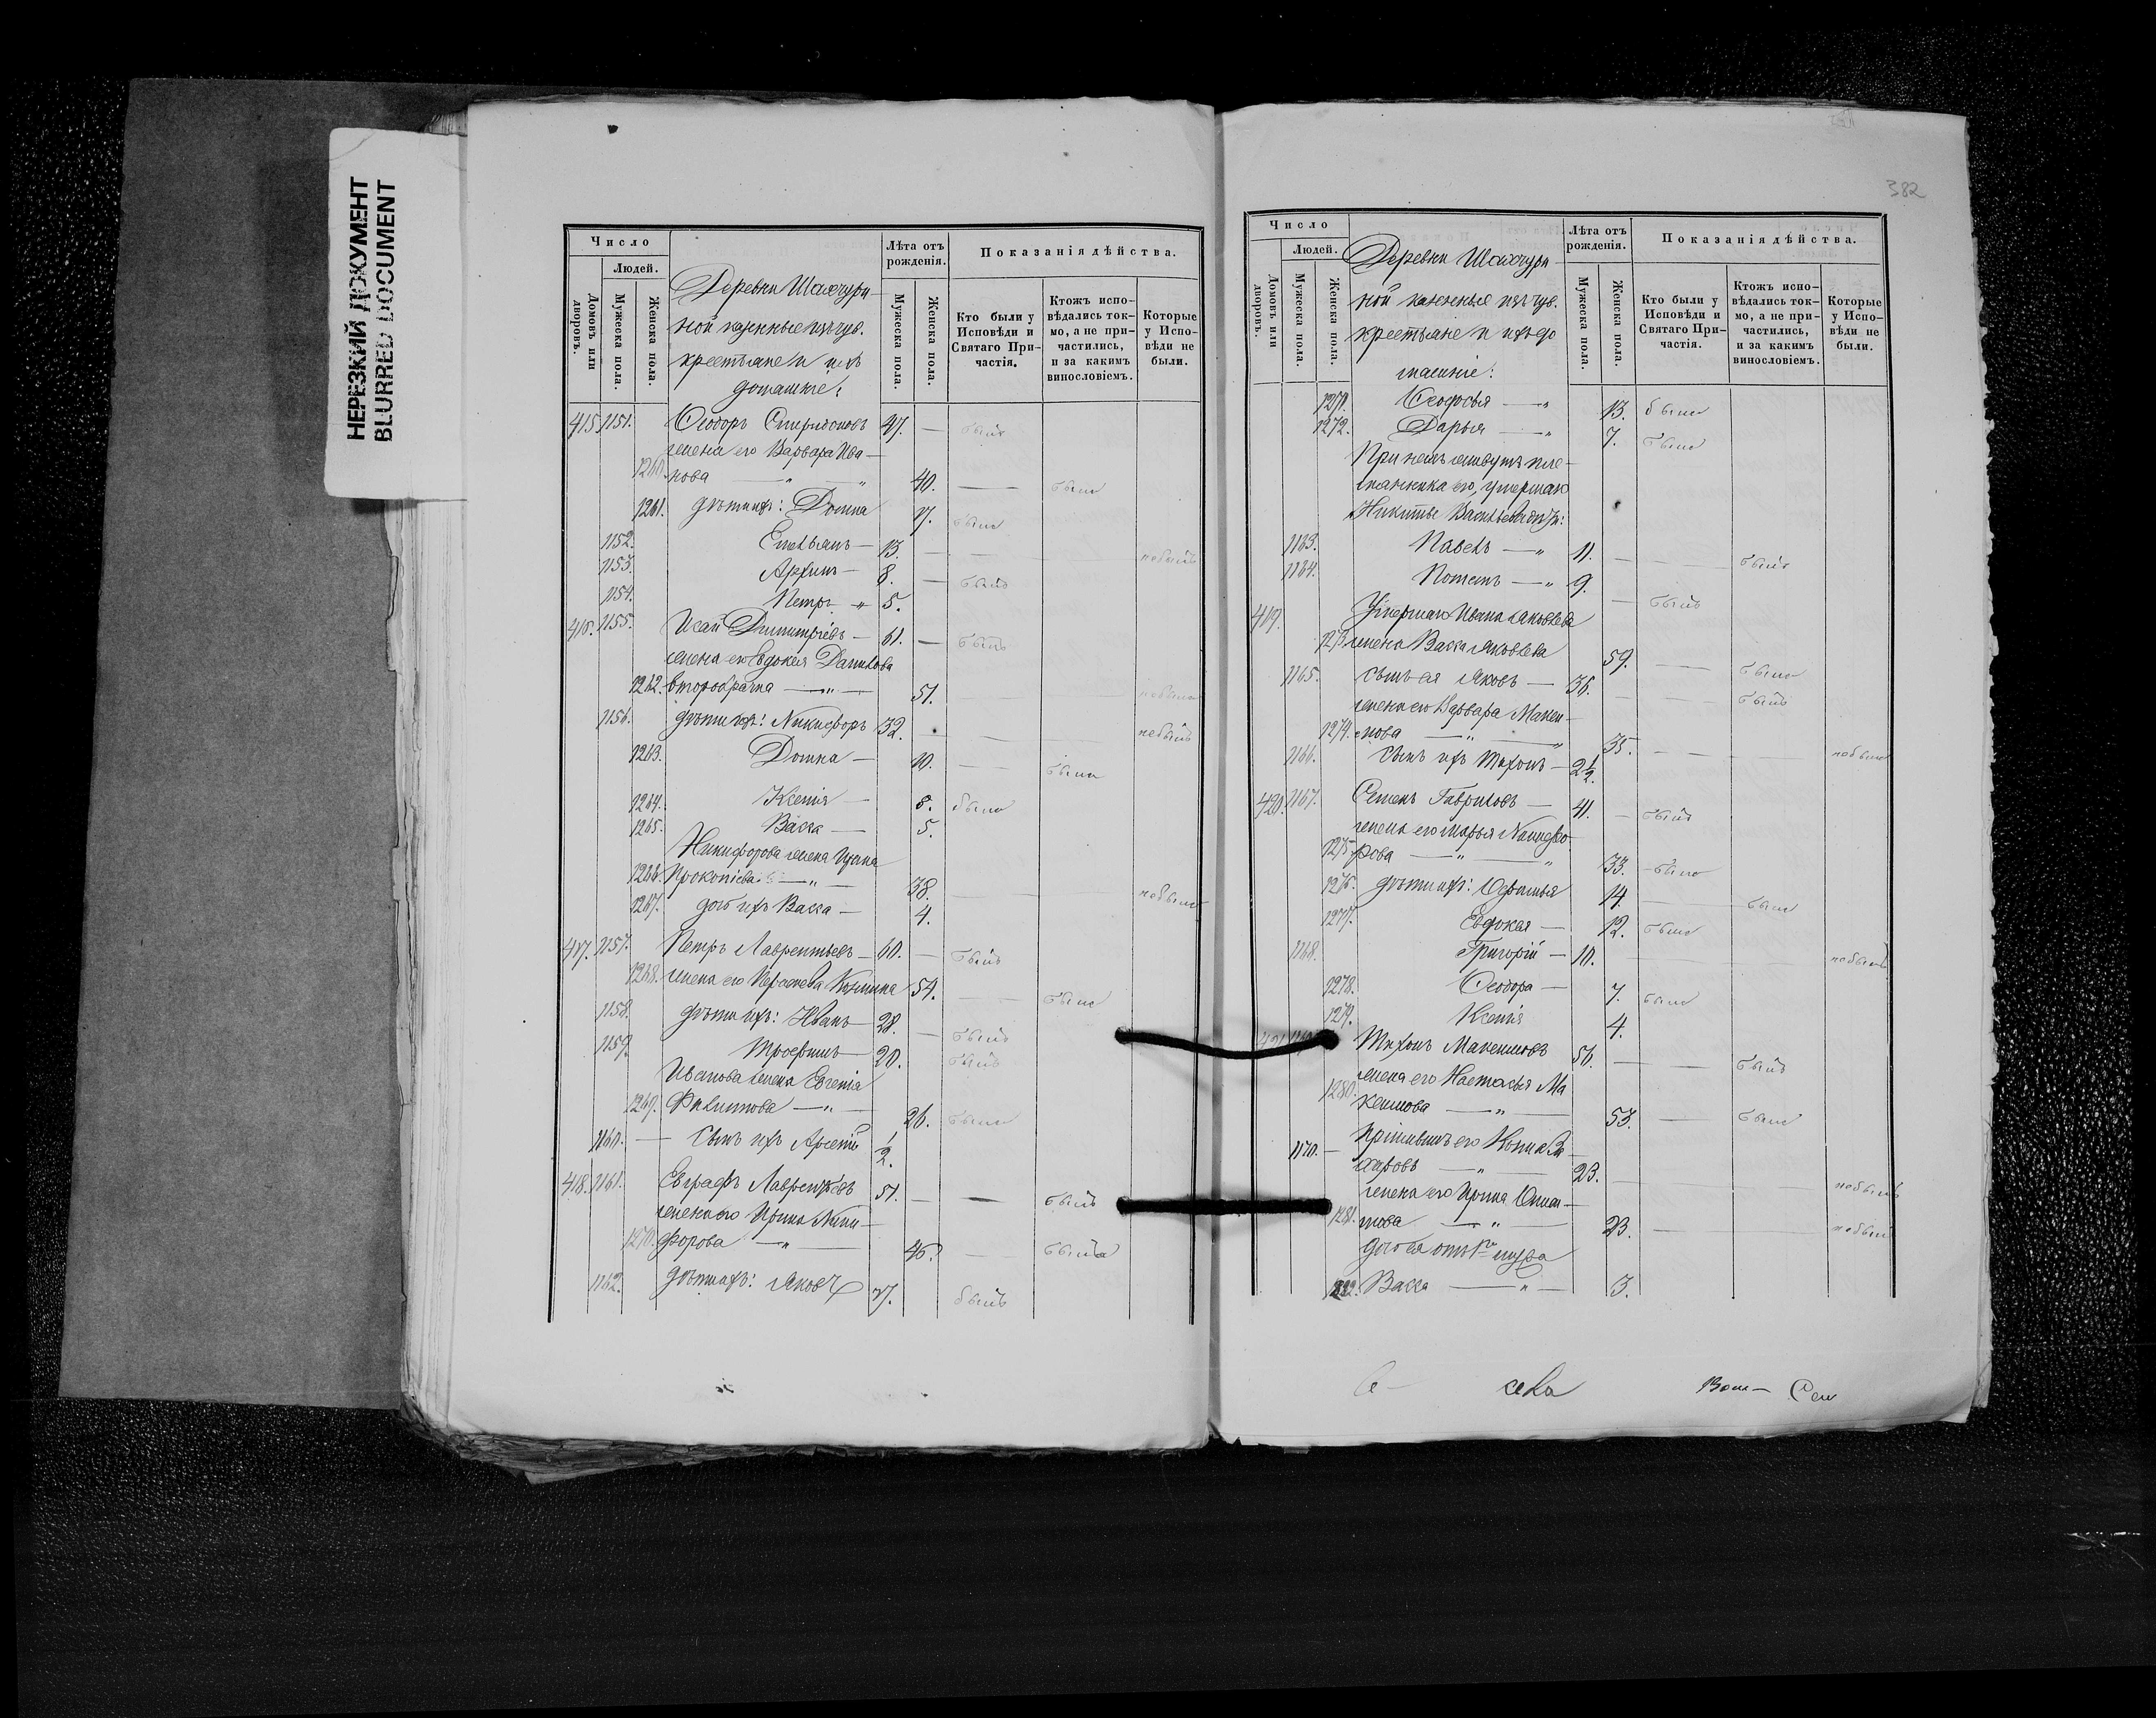 НЕРЕЗКИЙ ДОКУМЕНТ
BLURRED DOCUMENT
Число
Людей.
Домовъ или дворовъ.
Мужеска пола.
Женска пола.
Деревни Шахчури-
ной казенные изъ чув.
крестьяне и ихъ
домашніе:
Лѣта отъ рожденія.
Мужеска пола.
Женска пола.
Показанія дѣйства.
Кто были у Исповѣди и Святаго Причастія.
Ктожъ исповѣдались токмо, а не причастились, и за какимъ винословіемъ.
Которые у Исповѣди не были.
415. 1151. Ѳеодоръ Спиридоновъ 47. — былъ
жена его Варвара Ива-
1260. нова — " — " 40. — была
1261. дѣти ихъ: Домна 17. была
1152. Емельянъ — 13. — — небылъ
1153. Архипъ — 8. — былъ
1154. Петръ " 5.
416. 1155. Исай Димитріевъ — 61. — былъ
жена его Евдокія Данилова
1262. второбрачна — " — 51. небыла
1156. дѣти ихъ: Никифоръ 32. — — небылъ
1263. Домна — 10. — была
1264. Ксенія — 8. была
1265. Васса — 5.
Никифорова жена Ирина
1266. Прокопіева — " — 38. — небыла
1267. дочь ихъ Васса — 4.
417. 1157. Петръ Лаврентьевъ — 60. — былъ
1268. жена его Параскева Козмина 54. — была
1158. дѣти ихъ: Иванъ — 28. — былъ
1159. Трофимъ — 20. былъ
Иванова жена Евгенія
1269. Филиппова — " — 26. была
1160. — Сынъ ихъ Арсеній 1/2.
418. 1161. Евграфъ Лаврентьевъ 51. — — былъ
жена его Ирина Ники-
1270. форова — " — 46. — была
1162. дѣти ихъ: Яковъ 17. былъ
382
Число
Людей.
Домовъ или дворовъ.
Мужеска пола.
Женска пола.
Деревни Шахчури-
ной казенные изъ чув.
крестьяне и ихъ до
машніе:
Лѣта отъ рожденія.
Мужеска пола.
Женска пола.
Показанія дѣйства.
Кто были у Исповѣди и Святаго Причастія.
Ктожъ исповѣдались токмо, а не причастились, и за какимъ винословіемъ.
Которые у Исповѣди не были.
1271. Ѳеодосья — " 13. была
1272. Дарья — " 7. была
При немъ живутъ пле-
мянника его, умершаго
Никиты Васильева дѣти:
1163. Павелъ — " 11. — — былъ
1164. Потапъ — " 9. — былъ
419. Умершаго Ивана Яковлева
1273. жена Васса Яковлева 59. — была
1165. сынъ ея Яковъ — 36. — — былъ
жена его Варвара Макси-
1274. мова — " — " 35. — — небыла
1166. Сынъ ихъ Тихонъ — 2 1/2.
420. 1167. Семенъ Гавриловъ — 41. — былъ
жена его Марья Никифо-
1275. рова — " — " 33. была
1276. дѣти ихъ: Евфимья 14. — была
1277. Евдокія — 12. была
1168. Григорій — 10. — — небылъ
1278. Ѳеодора — 7. была
1279. Ксенія 4.
421. 1169. Тихонъ Максимовъ 56. — — былъ
жена его Настасья Ма
1280. ксимова — " — 53. — была
1170. —
— " — 23. — — небылъ
жена его Ирина
1281. — " — 23. — — небыла
дочь ея отъ 1го мужа
1282. Васса — " — 3.